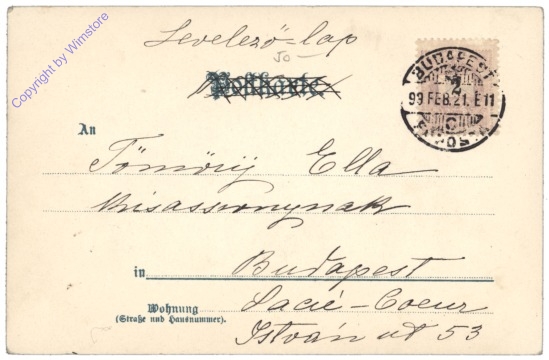 Copyright by Wimstore
Levelező-lap
Postkarte
BUDAPEST
2
99 FEB. 21. E 11
An
Ella
kisasszonynak
in Budapest
Wohnung Sacré-Coeur
(Straße und Hausnummer). István út 53